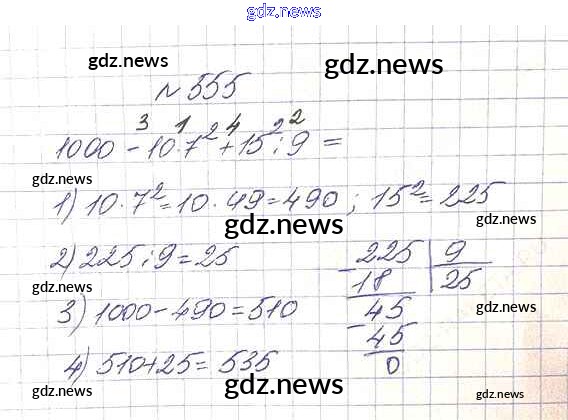 gdz.news
gdz.news gdz.news
№ 555
3 1 4 2
1000 - 10·7² + 15² : 9 =
gdz.news
1) 10·7² = 10·49 = 490 ; 15² = 225
gdz.news gdz.news
2) 225 : 9 = 25
225 | 9
gdz.news
- 18 25
3) 1000 - 490 = 510
45
gdz.news
- 45
4) 510 + 25 = 535
0
gdz.news gdz.news
gdz.news